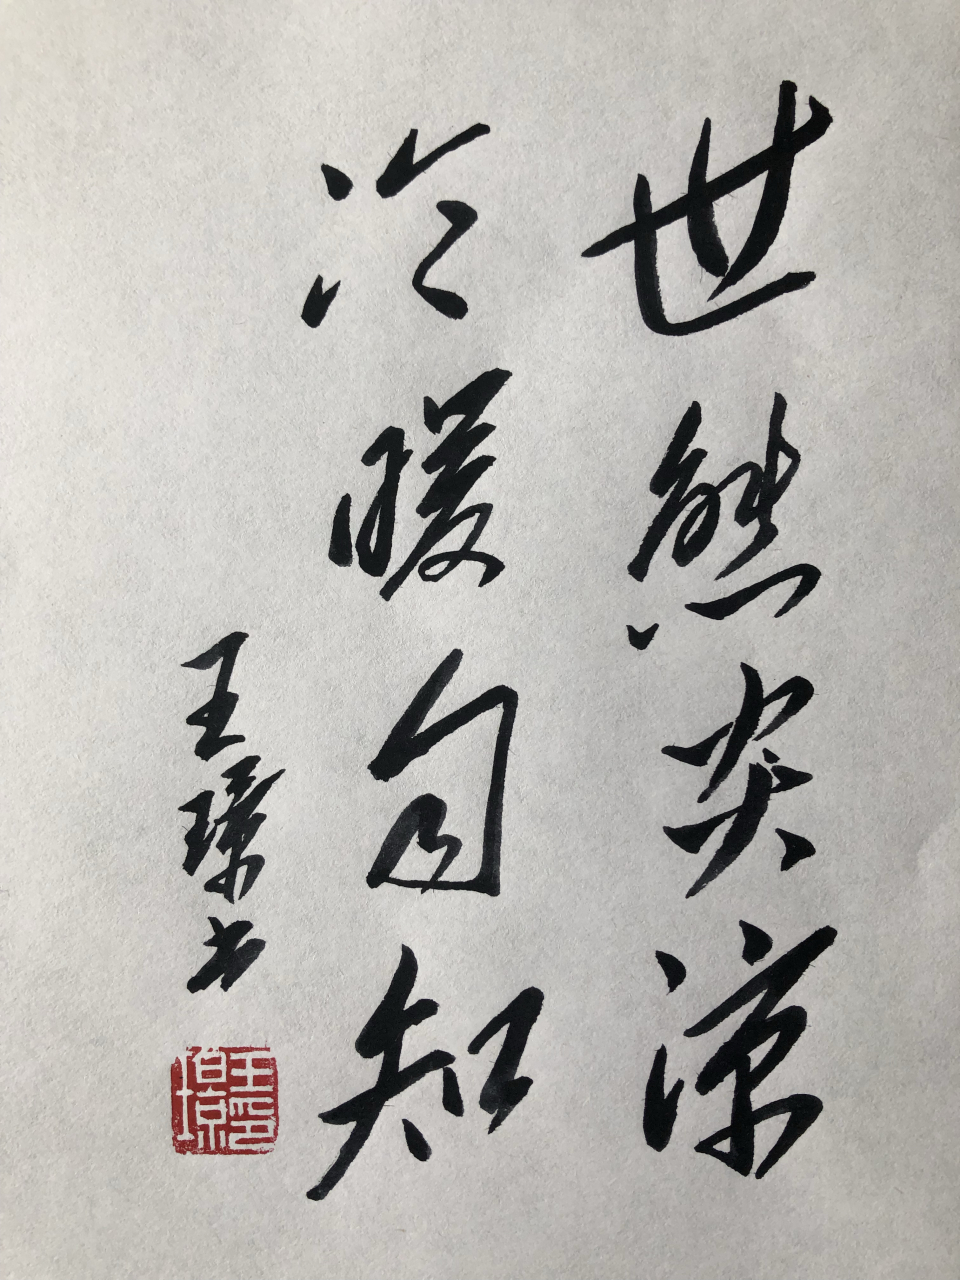 世態炎涼
冷暖自知
王璟书
王璟印